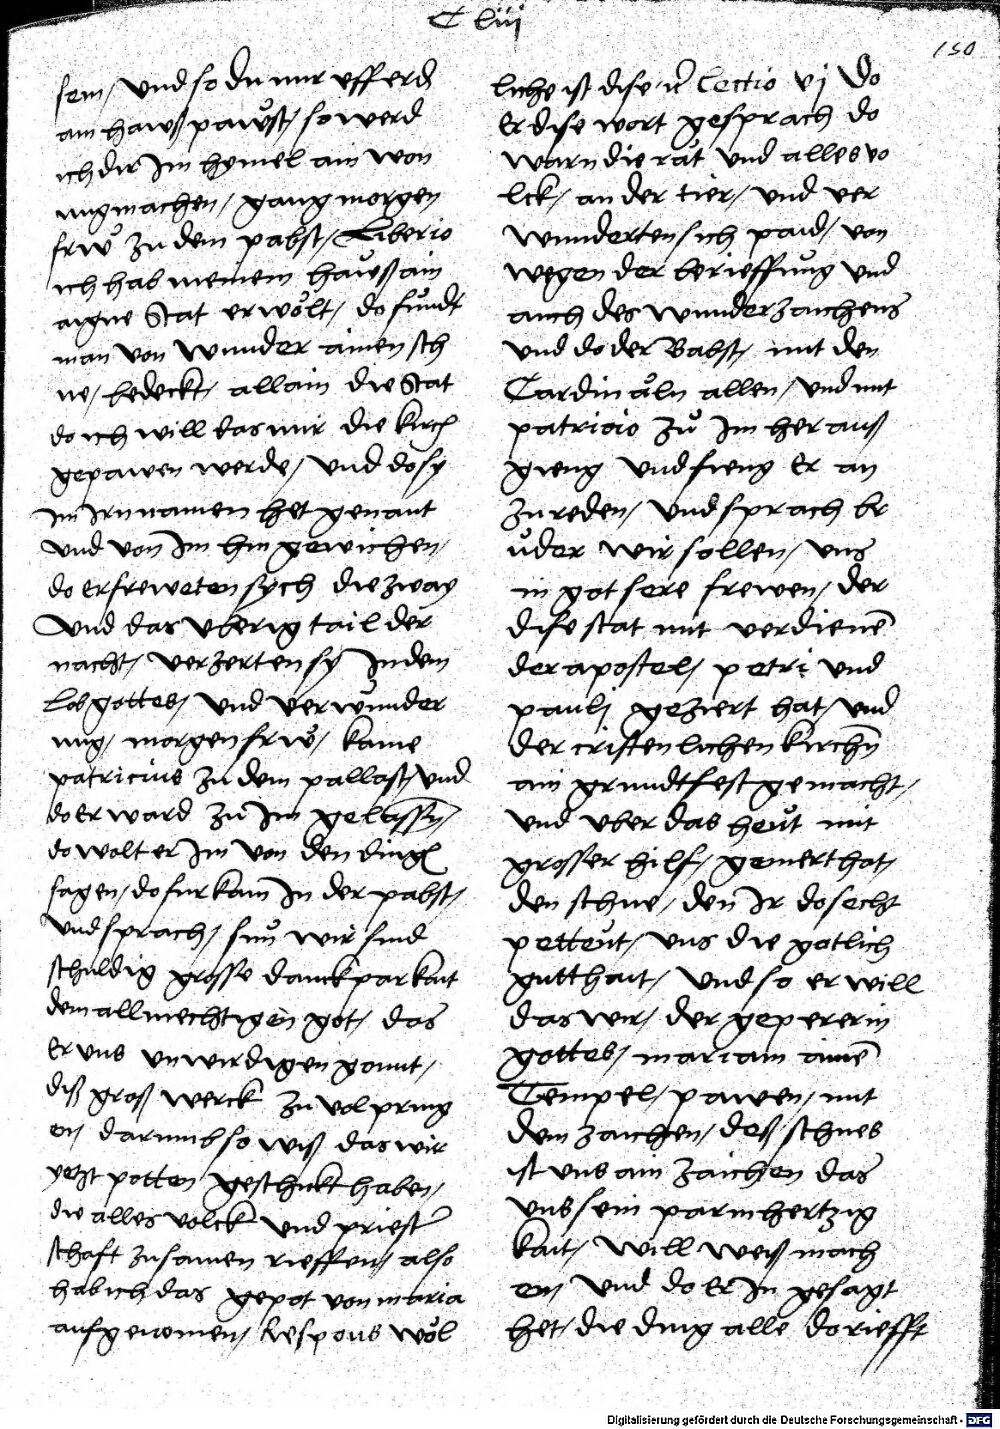 C lvij
150
sein / Vnd so du mir vff erd
ain hawß pawst / so werd
ich dir Im hymel ain won
ung machen / gang morgen
frw zu dem pabst / Liberio
ich hab meinem hawß ain
aigne Stat erwölt / do fundt
man von wunder ainen sch
ne / bedeckt / allain die Stat
do ich will das mir die kirch
gepawen werde / Vnd do sy
im Irn namen het genant
vnd von Im hin gewichen /
do erfreweten sych die zway
Vnd das vberig tail der
nacht / verzerten sy In dem
Lob gottes / Vnd verwunder
ung / morgen frw / kame
patricius zu dem pallast / Vnd
do er ward zu Im gelassen /
do wolt er Im von den dingen
sagen / do fur kam In der pabst /
vnd sprach / sun wir sind
schuldig grosse danckparkait
dem allmechtigen got / das
Er vns vnwirdigen gonnt /
diß groß werck zu volpring
en / darumb so wiß das wir
yetzt potten geschickt haben /
die alles volck vnd priester
schaft zusamen rieffen / also
hab ich das gepot von maria
aufgenomen / Respons wöl
liche ist dise Lectio vj Do
Er dise wort gesprach do
warn die rät vnd alles vo
lck / an der tier / vnd ver
wunderten sich paid / von
wegen der berieffung vnd
auch des wunderzaichens
vnd do der Babst / mit den
Cardinäln allen / vnd mit
patricio zu Im her auß
gieng vnd fieng Er an
zu reden / Vnd sprach br
üder wir sollen / vns
in got sere frewen / der
dise stat mit verdienen
der apostel / petri vnd
paulj geziert hat / Vnd
der cristenlichen kirchen
ain grundtfest gemacht /
vnd vber das heut mit
grosser hilf / gemert hat /
den schne / den Ir do secht
petteut / vns die gotlich
gutthait / Vnd so er will
das wir / der gepererin
gottes / mariam ainen
Tempel / pawen / mit
dem zaichen / deß schnes
ist vns ain zaichen das
vns sein parmhertzig
kait / will weiß mach
en / Vnd do Er In gesagt
het / die ding alle do riefft
Digitalisierung gefördert durch die Deutsche Forschungsgemeinschaft - DFG